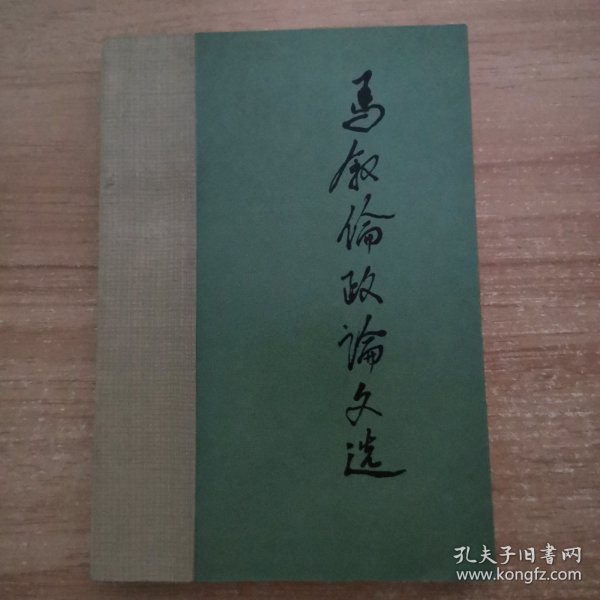 马叙倫政論文选
孔夫子旧书网
www.kongfz.com